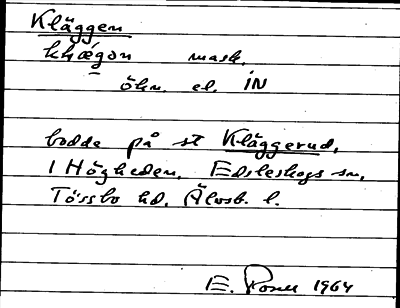 Kläggen
mask.
öhn. el. iN
bodde på st Kläggerud,
i Högheden, Edsleskogs sn,
Tössbo hd. Älvsb. l.
E. 1964